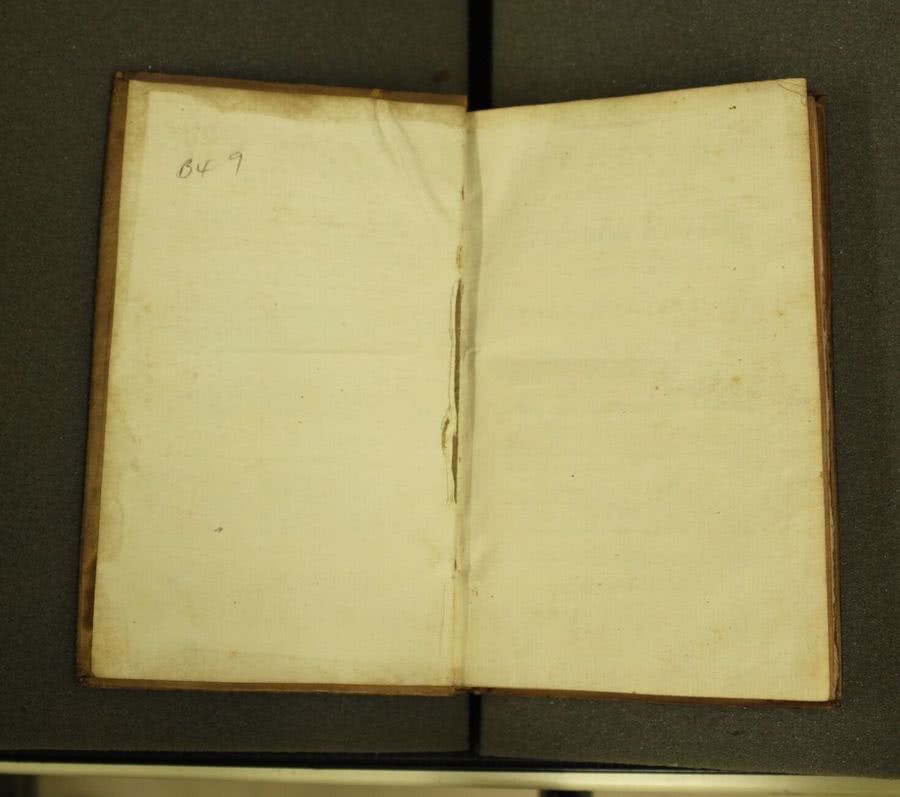 B4 9